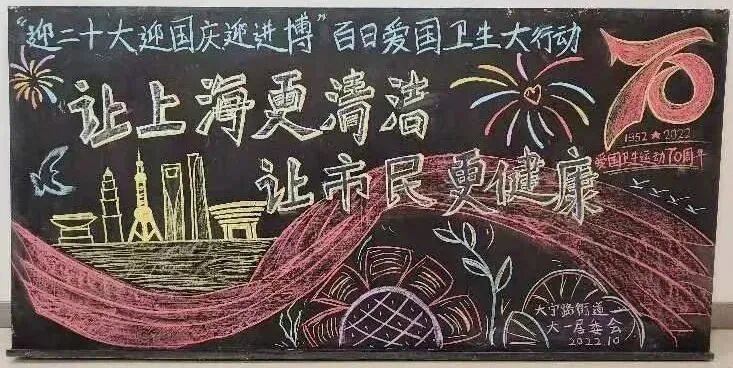 “迎二十大迎国庆迎进博”百日爱国卫生大行动
让上海更清洁
让市民更健康
70
1952★2022
爱国卫生运动70周年
大宁路街道
大一居委会
2022.10